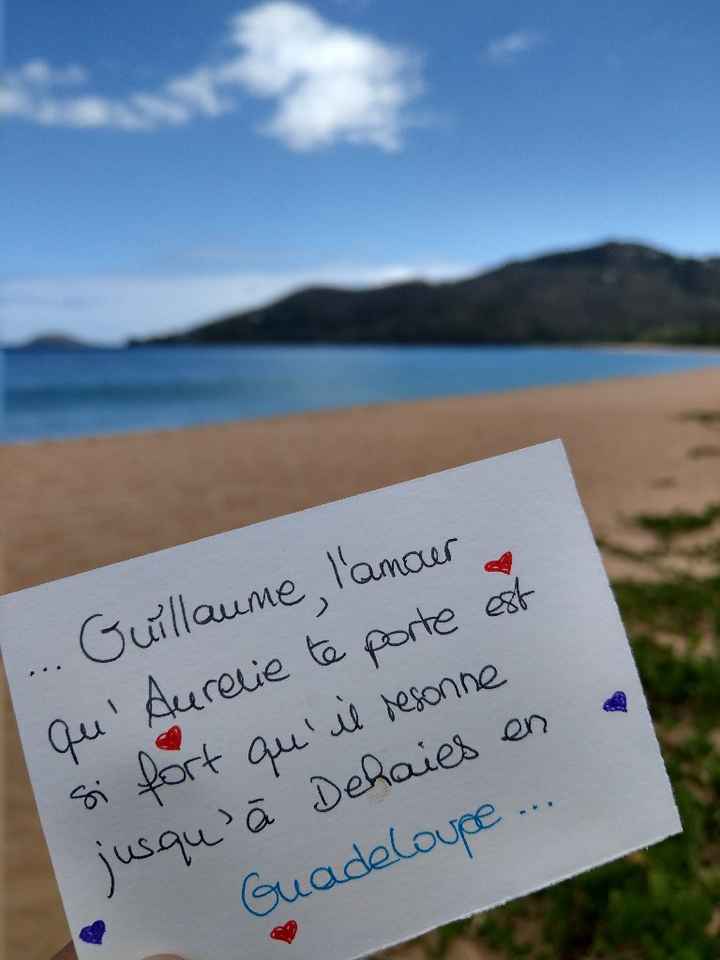 ... Guillaume, l'amour
qu'Aurelie te porte est
si fort qu'il resonne
jusqu'à Dehaies en
Guadeloupe...